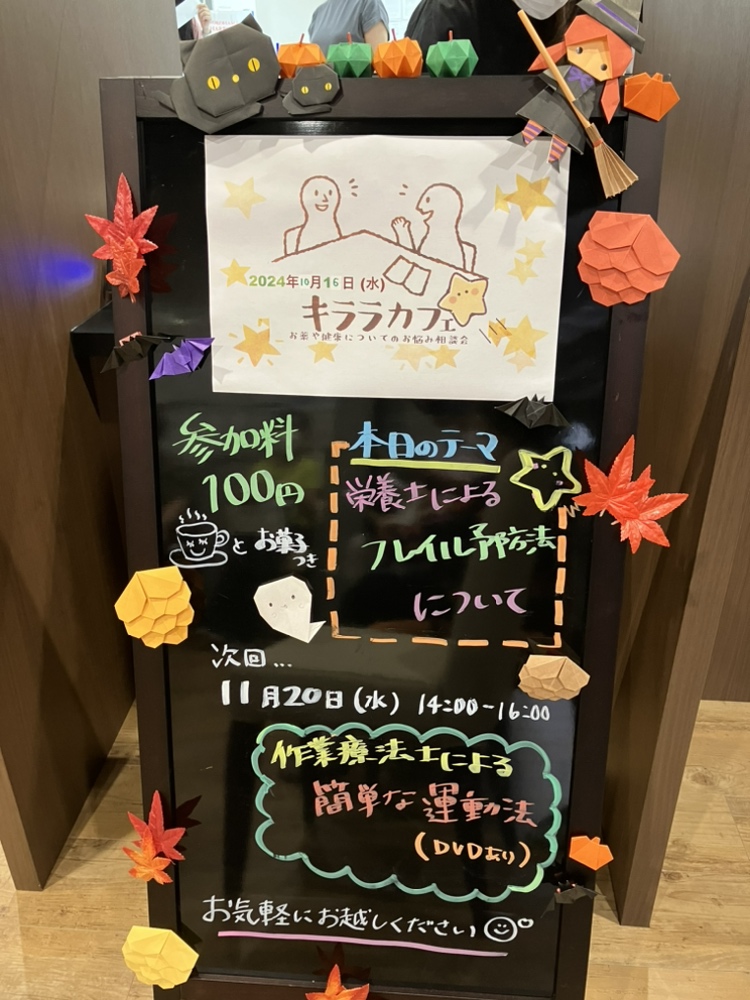 2024年10月16日(水)
キララカフェ
お薬や健康についてのお悩み相談会
参加料
100円
と お菓子
つき
本日のテーマ
栄養士による
フレイル予防法
について
次回...
11月20日(水) 14:00-16:00
作業療法士による
簡単な運動法
(DVDあり)
お気軽にお越しください